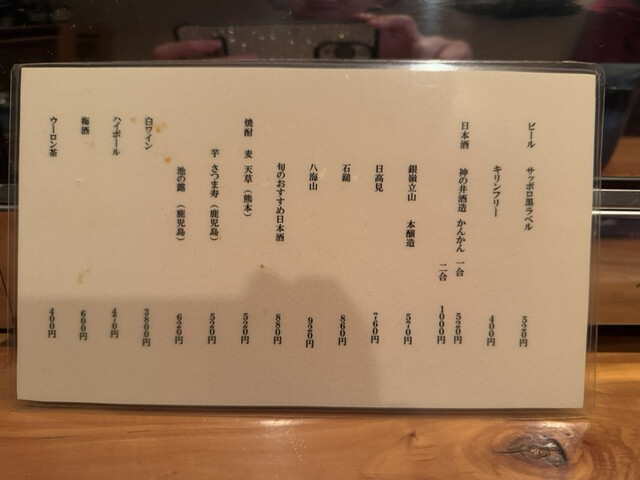 ビール サッポロ黒ラベル 520円
キリンフリー 400円
日本酒 神の井酒造 かんかん 一合 520円
二合 1000円
銀嶺立山 本醸造 570円
日高見 760円
石鎚 860円
八海山 920円
旬のおすすめ日本酒 880円
焼酎 麦 天草(熊本) 520円
芋 さつま寿(鹿児島) 520円
池の露(鹿児島) 620円
白ワイン 3800円
ハイボール 470円
梅酒 600円
ウーロン茶 400円